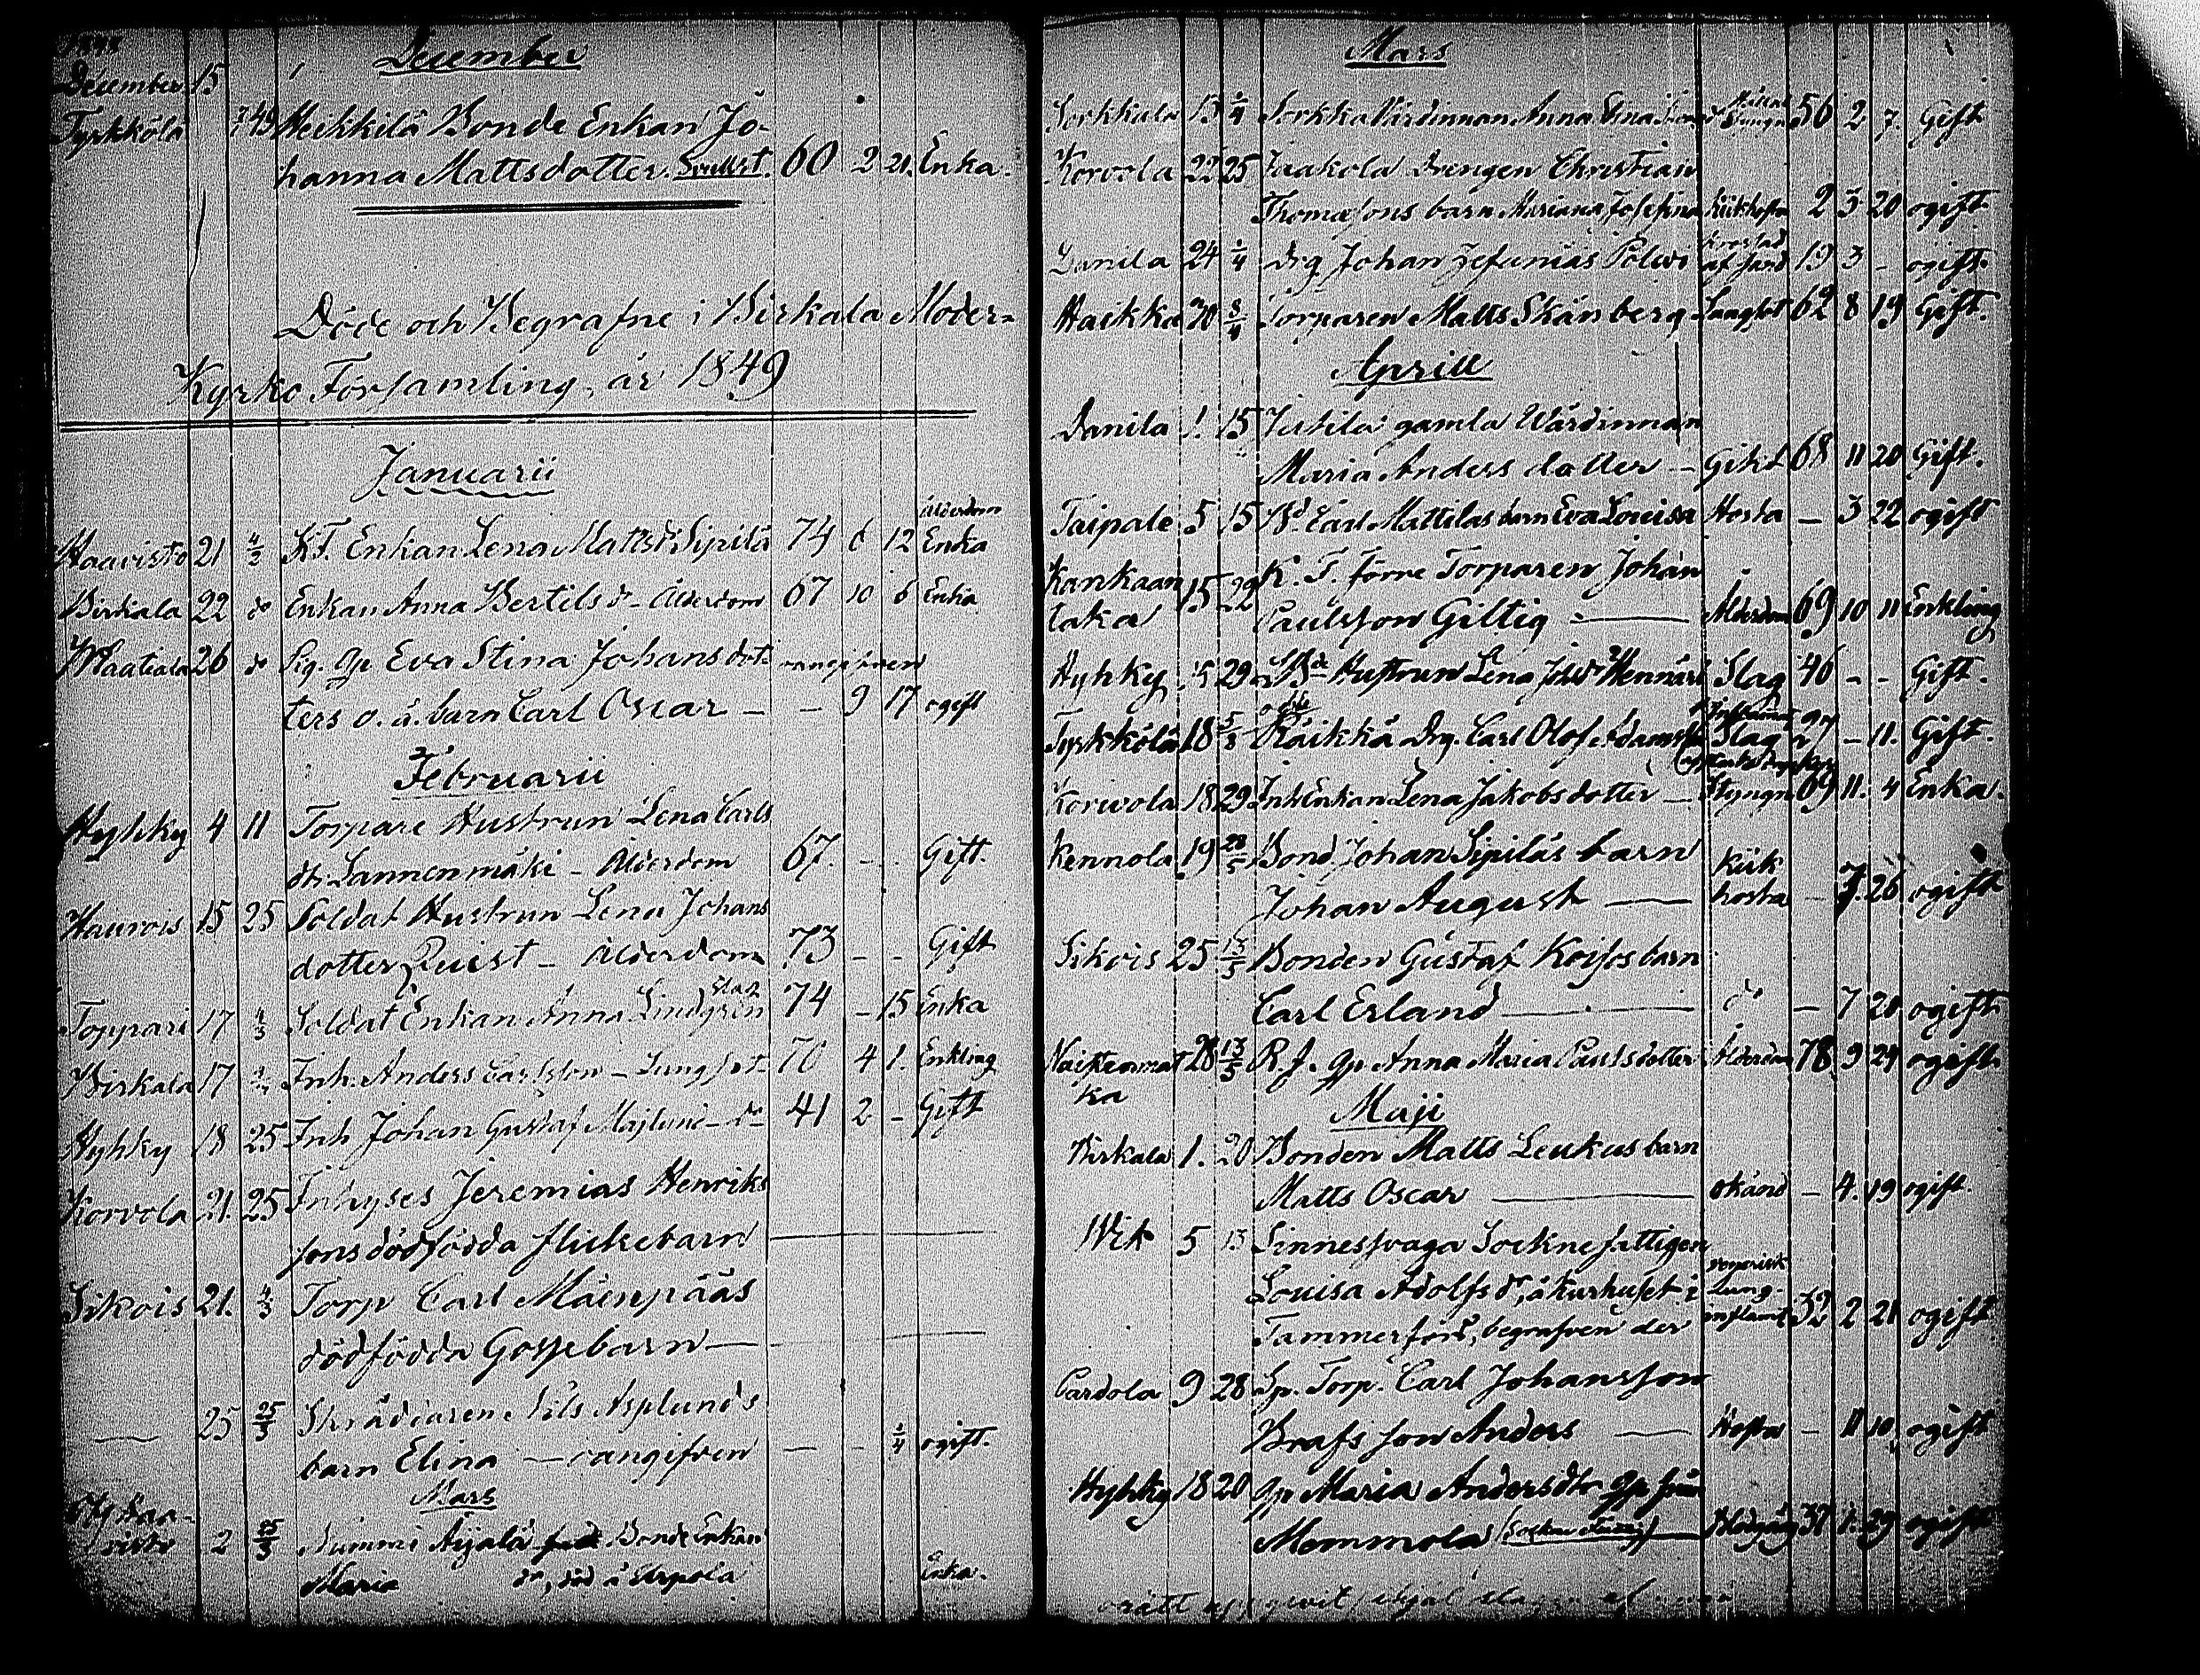 December
December 15
Tyrkkölä Heikkilä Bonde Enkan Jo-
hanna Mattsdotter 60 2 21. Enka.
Döde och Begrafne i Birkala Moder-
Kyrko Församling år 1849
Januarii
Ålderdom
Haavisto 21 4/2 K.F. Enkan Lena Mattsd Sipilä 74 6 12 Enka
Birkala 22 do Enkan Anna Bertils d - Ålderdom 67 10 6 Enka
26 do Eva Stina Johansdot- oangifven
ters o. ä. barn Carl Oscar - - 9 17 ogift
Februarii
Hyhky 4 11 Torpare Hustrun Lena Carls
dtr Lannenmäki - Ålderdom 67. - - Gift.
Haurois 15 25 Soldat Hustrun Lena Johans
dotter Quist - Ålderdom 73 - - Gift
Slag
Toppari 17 4/3 Soldat Enkan Anna Lindgren 74 - 15 Enka
Birkala 17 Inh. Anders Carlsson - Lungsot 70 4 1. Enkling
Hyhky 18 25 Inh Johan Gustaf Majlund - do 41 2 - Gift
Korvola 21. 25 Inhyses Jeremias Henriks
sons dödfödda flickebarn
Sikois 21. 4/3 Torp Carl Mäenpääs
dödfödda Gossebarn
— 25 25/3 Skräddaren Nils Asplunds
barn Elina — oangifven — - 1/4 ogift.
Mars
2 25/3 Nummi Äijälä Bonde Enkan
Maria dr, död å Enka.
Mars
Sorkkala 13 1/4 Sorkka Wärdinnan Anna Stina 56 2 7. Gift
Korvola 22 25 Jaakola Drengen Christian
Thomassons barn Mariana Josefina Kikhosta 2 3 20 ogift
Danila 24 1/4 Drg Johan Zefanias Polvi 19 3 - ogift.
Haikka 30 8/4 Torparen Matts Skänberg Lungsot 62 8 19 Gift.
Aprill
Danila 1. 15 gamla Wärdinnan
Maria Anders dotter — Gikt 68 11 20 Gift.
Taipale 5 15 Bd. Carl Mattilas barn Eva Lovisa Hosta — 3 22 ogift
Kankaan K. F. förre Torparen Johan
taka 15 22 Paulsson Giltig — Ålderdom 69 10 11 Enkling
Hyhky 15 29 Hustrun Lena Slag 46 - - Gift.
Tyrkkölä 18 Räikkä Drg. Carl Olof Adamsson Slag — 11. Gift.
Korwola 18 29 Inh Enkan Lena Jakobsdotter — Styng 69 11. 4 Enka.
Kennola 19 28/5 Bond. Johan Sipiläs barn Kik
Johan August — hosta — 7. 26 ogift
Sikois 25 13/5 Bonden Gustaf Koisos barn
Carl Erland — do — 7 20 ogift
Naistenmat 28 13/5 R. f. Gp Anna Maria Paulsdotter Ålderdom 78 9 24 ogift
ka
Maji
Birkala 1. 20 Bonden Matts Leukus barn
Matts Oscar — okänd — 4. 19 ogift.
Wik 5 13 Sinnessvaga Sockne fattigen
Louisa Adolfs dr, å Kurhuset i Lung-
Tammerfors, begrafven der inflamt 32 2 21 ogift
Pardola 9 28 Sp. Torp. Carl Johansson
Brafs son Anders — Hosta — 11 10 ogift
Hyhky 18 20 Gp Maria Andersdtr Gp från
Mommola 37 1. 29 ogift